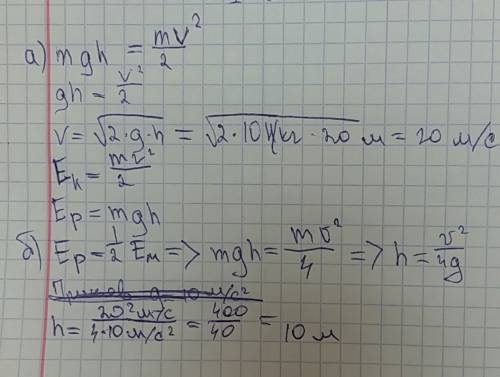 а) mgh = mv²/2
gh = v²/2
v = √2·g·h = √2·10Н/кг·20 м = 20 м/с
Eк = mv²/2
Ep = mgh
б) Ep = 1/2 Eм => mgh = mv²/4 => h = v²/4g
h = 20² м/с / 4·10 м/с² = 400/40 = 10 м